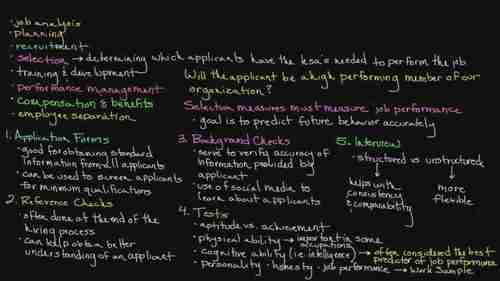 • job analysis
• planning
• recruitment
• selection → determining which applicants have the ksa's needed to perform the job
• training & development
Will the applicant be a high performing member of our
organization?
• performance management
• compensation & benefits
• employee separation
Selection measures must measure job performance
• goal is to predict future behavior accurately
1. Application Forms
• good for obtaining standard
information from all applicants
• can be used to screen applicants
for minimum qualifications
2. Reference Checks
• often done at the end of the
hiring process
• can help obtain better
understanding of an applicant
3. Background Checks
• serve to verify accuracy of
information provided by
applicant
• use of social media to
learn about applicants
4. Tests
• aptitude vs. achievement
• physical ability → important in some
occupations
• cognitive ability (i.e. intelligence) → often considered the best
predictor of job performance
• personality • honesty • job performance → work sample
5. Interview
• structured vs unstructured
helps with
consistency
& comparability
more
flexible